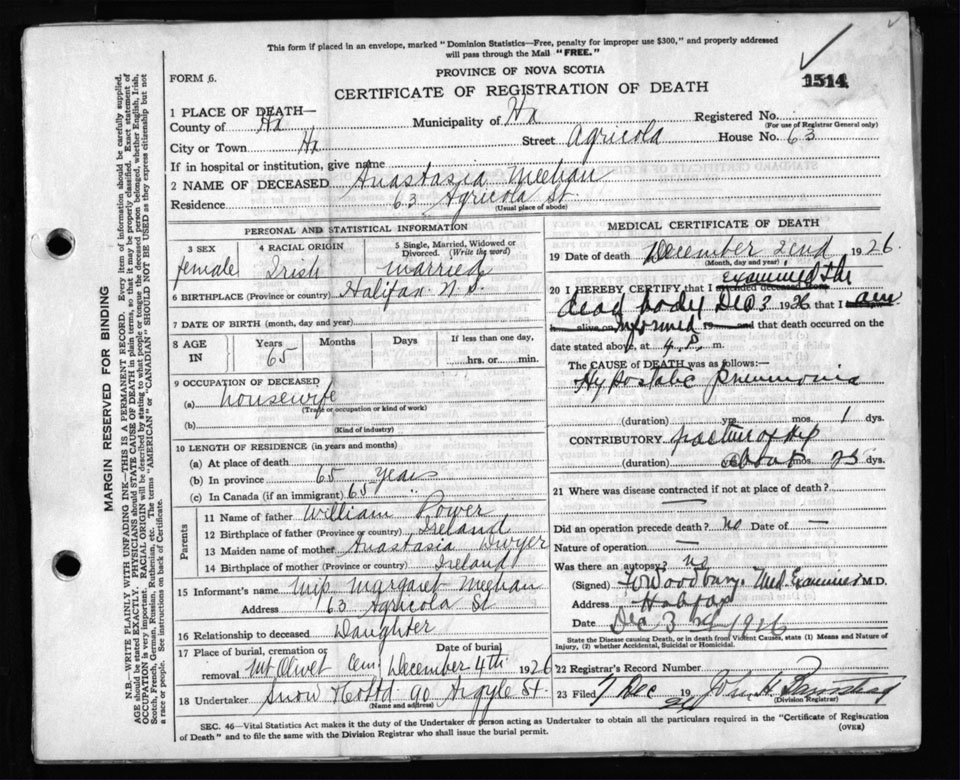 This form if placed in an envelope, marked "Dominion Statistics—Free, penalty for improper use $300," and properly addressed
will pass through the Mail "FREE."
FORM 6.
PROVINCE OF NOVA SCOTIA
CERTIFICATE OF REGISTRATION OF DEATH
1514
1 PLACE OF DEATH—
County of Hx Municipality of Hx Registered No.
(For use of Registrar General only)
City or Town Hx Street Agricola House No. 63
If in hospital or institution, give name
2 NAME OF DECEASED Anastasia Meehan
Residence 63 Agricola St
(Usual place of abode)
PERSONAL AND STATISTICAL INFORMATION
3 SEX female
4 RACIAL ORIGIN Irish
5 Single, Married, Widowed or Divorced. (Write the word) married
6 BIRTHPLACE (Province or country) Halifax N.S.
7 DATE OF BIRTH (month, day and year)
8 AGE IN Years 65 Months Days If less than one day, hrs. or min.
9 OCCUPATION OF DECEASED
(a) housewife
(Trade or occupation or kind of work)
(b)
(Kind of industry)
10 LENGTH OF RESIDENCE (in years and months)
(a) At place of death
(b) In province 65 years
(c) In Canada (if an immigrant) 65 "
Parents
11 Name of father William Power
12 Birthplace of father (Province or country) Ireland
13 Maiden name of mother Anastasia Dwyer
14 Birthplace of mother (Province or country) Ireland
15 Informant's name Margaret Meehan
Address 63 Agricola St
16 Relationship to deceased Daughter
17 Place of burial, cremation or removal Mt Olivet Cem. Date of burial December 4th 1926
18 Undertaker Snow & Co Ltd 90 Argyle St.
(Name and address)
MEDICAL CERTIFICATE OF DEATH
19 Date of death December 2nd 1926
(Month, day and year)
20 I HEREBY CERTIFY that I attended deceased from examined the
dead body Dec 3 1926 that I am
alive on informed 19 and that death occurred on
date stated above, at 4 P. m.
The CAUSE of DEATH was as follows:—
Hypostatic Pneumonia
(duration) yrs. mos. 1 dys.
CONTRIBUTORY fracture of hip
(duration) about mos. 25 dys.
21 Where was disease contracted if not at place of death?
—
Did an operation precede death? no Date of —
Nature of operation —
Was there an autopsy? no
(Signed) Woodbury. Med. Examiner M.D.
Address Halifax
Date Dec 3rd 1926
State the Disease causing Death, or in death from Violent Causes, state (1) Means and Nature of
Injury, (2) whether Accidental, Suicidal or Homicidal.
22 Registrar's Record Number
23 Filed 7 Dec 19 John H.
(Division Registrar)
SEC. 46—Vital Statistics Act makes it the duty of the Undertaker or person acting as Undertaker to obtain all the particulars required in the "Certificate of Registration
of Death" and to file the same with the Division Registrar who shall issue the burial permit.
(OVER)
MARGIN RESERVED FOR BINDING
N.B.—WRITE PLAINLY WITH UNFADING INK—THIS IS A PERMANENT RECORD. Every item of information should be carefully supplied.
AGE should be stated EXACTLY. PHYSICIANS should STATE CAUSE OF DEATH in plain terms, so that it may be properly classified. Exact statement of
OCCUPATION is very important. RACIAL ORIGIN will be described by stating to what people or tongue the deceased person belonged, whether English, Irish,
Scotch, French, German, Russian, Ruthenian, etc. The terms "AMERICAN" or "CANADIAN" SHOULD NOT BE USED as they express citizenship but not
a race or people. See instructions on back of Certificate.